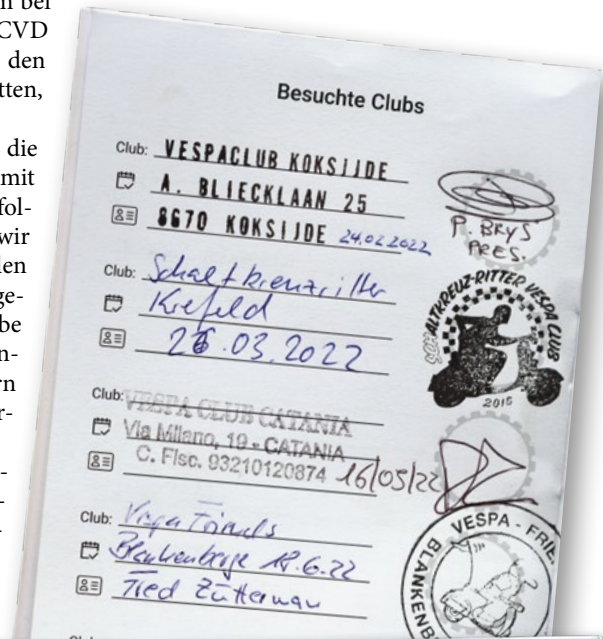 n bei
CVD
den
tten,
die
mit
fol-
wir
len
ge-
be
n-
rn
r-
-
-
-
Besuchte Clubs
Club: VESPACLUB KOKSIJDE
A. BLIECKLAAN 25
8670 KOKSIJDE 24.02.2022
P. BRYS
PRES.
Club: Schaltkreuzritter
Krefeld
26.03.2022
SCHALTKREUZ-RITTER VESPA CLUB
2015
Club: VESPA CLUB CATANIA
Via Milano, 19 - CATANIA
C. Fisc. 93210120874 16/05/22
Club:
Blankenberge 18.6.22
VESPA - FRIE
BLANKENB
Club: